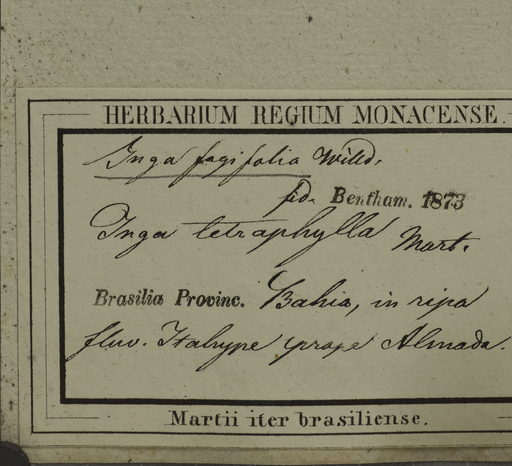 HERBARIUM REGIUM MONACENSE.
Inga fagifolia Willd.
fid. Bentham. 1873
Inga tetraphylla Mart.
Brasilia Provinc. Bahia, in ripa
fluv. Itahype prope Almada.
Martii iter brasiliense.